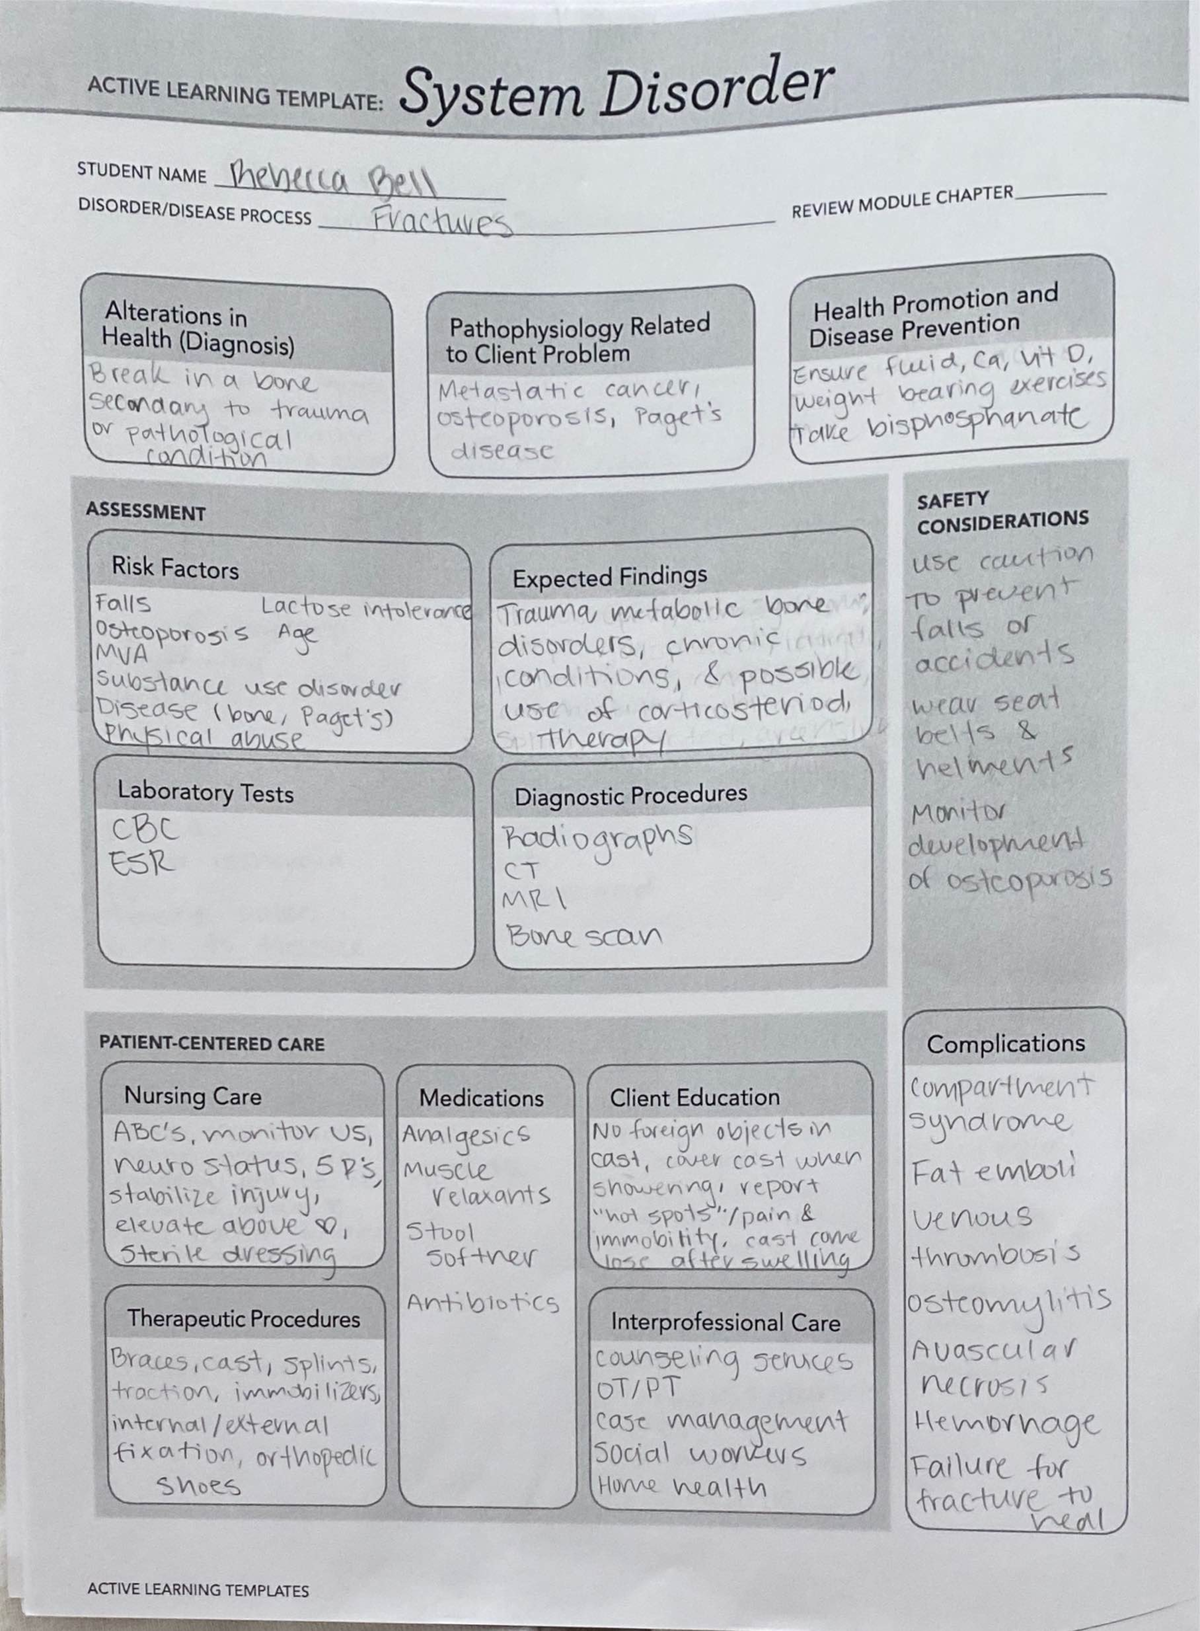 ACTIVE LEARNING TEMPLATE: System Disorder
STUDENT NAME Rebecca Bell
DISORDER/DISEASE PROCESS Fractures
REVIEW MODULE CHAPTER
Alterations in
Health (Diagnosis)
Break in a bone
secondary to trauma
or pathological
condition
Pathophysiology Related
to Client Problem
Metastatic cancer,
osteoporosis, Paget's
disease
Health Promotion and
Disease Prevention
Ensure fluid, Ca, Vit D,
weight bearing exercises
Take bisphosphanate
ASSESSMENT
Risk Factors
Falls Lactose intolerance
Osteoporosis Age
MVA
Substance use disorder
Disease (bone, Paget's)
Physical abuse
Expected Findings
Trauma, metabolic bone
disorders, chronic
conditions, & possible
use of corticosteriod,
therapy
Laboratory Tests
CBC
ESR
Diagnostic Procedures
Radiographs
CT
MRI
Bone scan
SAFETY
CONSIDERATIONS
use caution
to prevent
falls or
accidents
wear seat
belts &
helments
Monitor
development
of osteoporosis
PATIENT-CENTERED CARE
Nursing Care
ABC's, monitor VS,
neuro status, 5 P's,
stabilize injury,
elevate above ♡,
Sterile dressing
Medications
Analgesics
Muscle
relaxants
Stool
softner
Antibiotics
Client Education
No foreign objects in
cast, cover cast when
showering, report
"hot spots"/pain &
immobility, cast come
lose after swelling
Therapeutic Procedures
Braces, cast, splints,
traction, immobilizers,
internal/external
fixation, orthopedic
shoes
Interprofessional Care
counseling services
OT/PT
case management
Social workers
Home health
Complications
compartment
syndrome
Fat emboli
venous
thrombosis
osteomylitis
Avascular
necrosis
Hemorrhage
Failure for
fracture to
heal
ACTIVE LEARNING TEMPLATES